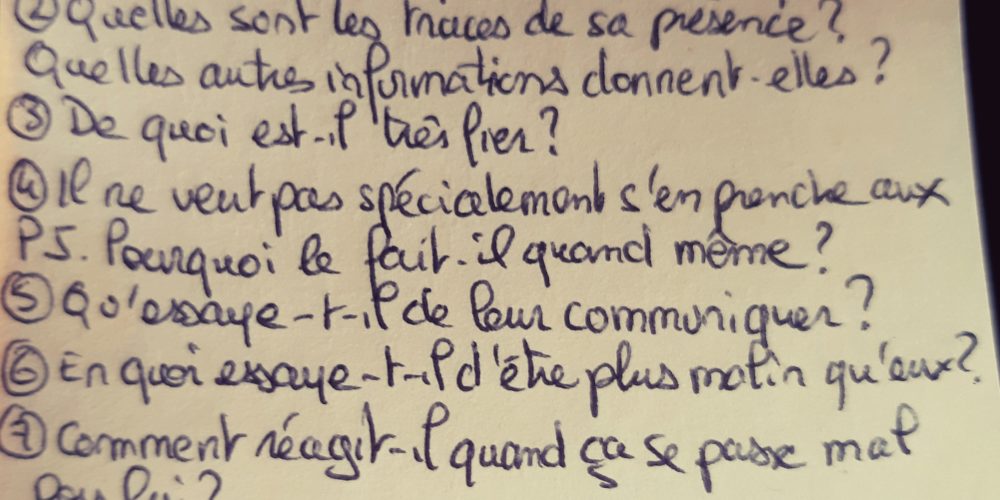 ② Quelles sont les traces de sa présence?
Quelles autres informations donnent-elles?
③ De quoi est-il très fier?
④ Il ne veut pas spécialement s'en prendre aux
PJ. Pourquoi le fait-il quand même?
⑤ Qu'essaye-t-il de leur communiquer?
⑥ En quoi essaye-t-il d'être plus malin qu'eux?
⑦ Comment réagit-il quand ça se passe mal
pour lui?